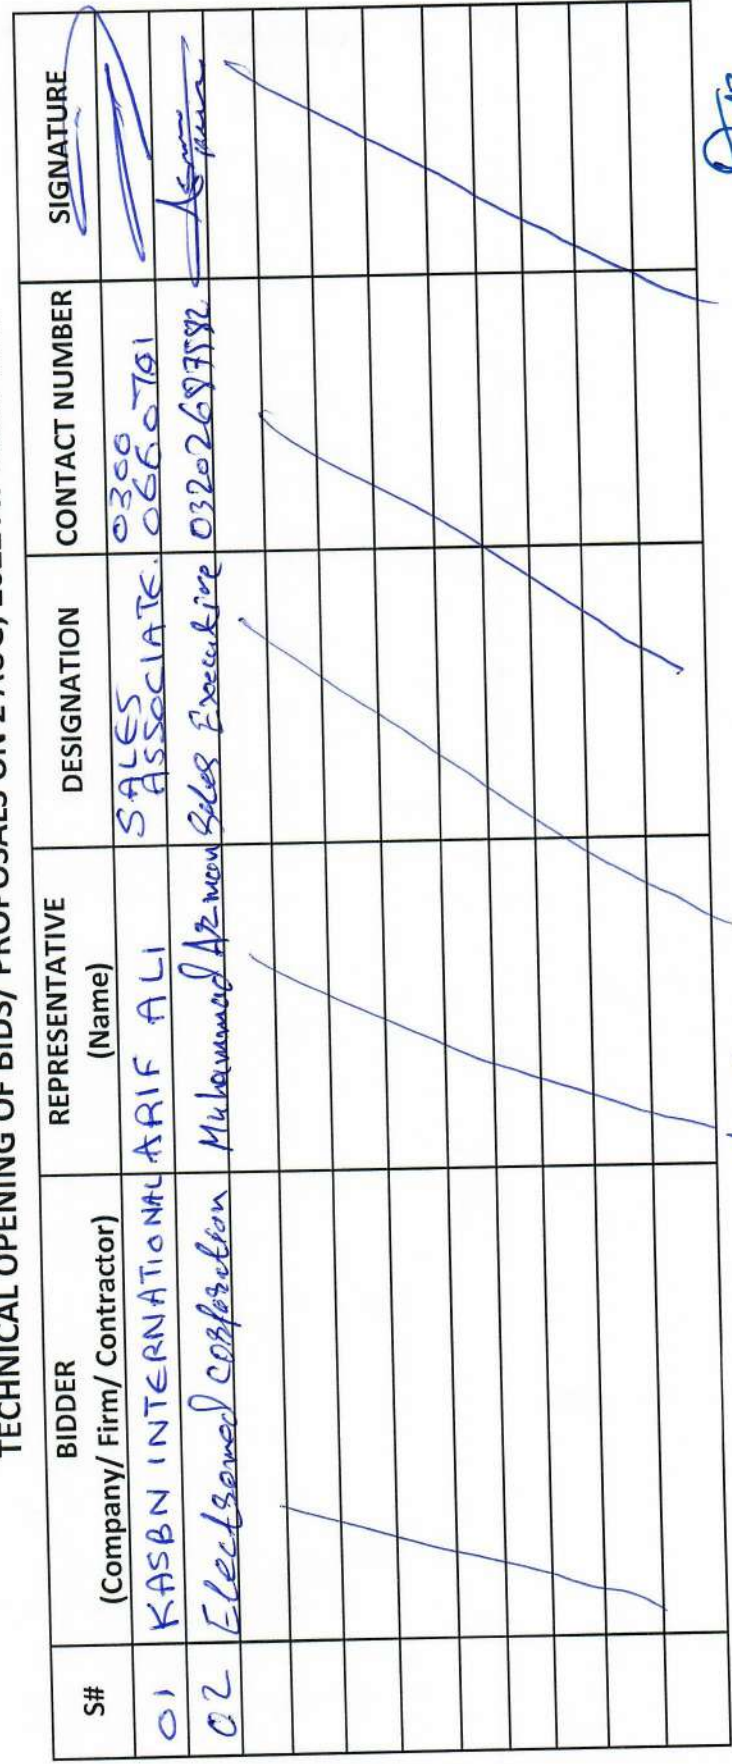 TECHNICAL OPENING OF BIDS/ PROPOSALS ON 2 AUG, 
S# BIDDER (Company/ Firm/ Contractor) REPRESENTATIVE (Name) DESIGNATION CONTACT NUMBER SIGNATURE
01 KASBN INTERNATIONAL ARIF ALI SALES ASSOCIATE. 0300
02 Electromed corporation Muhammad Armean Sales Executive 03202687582